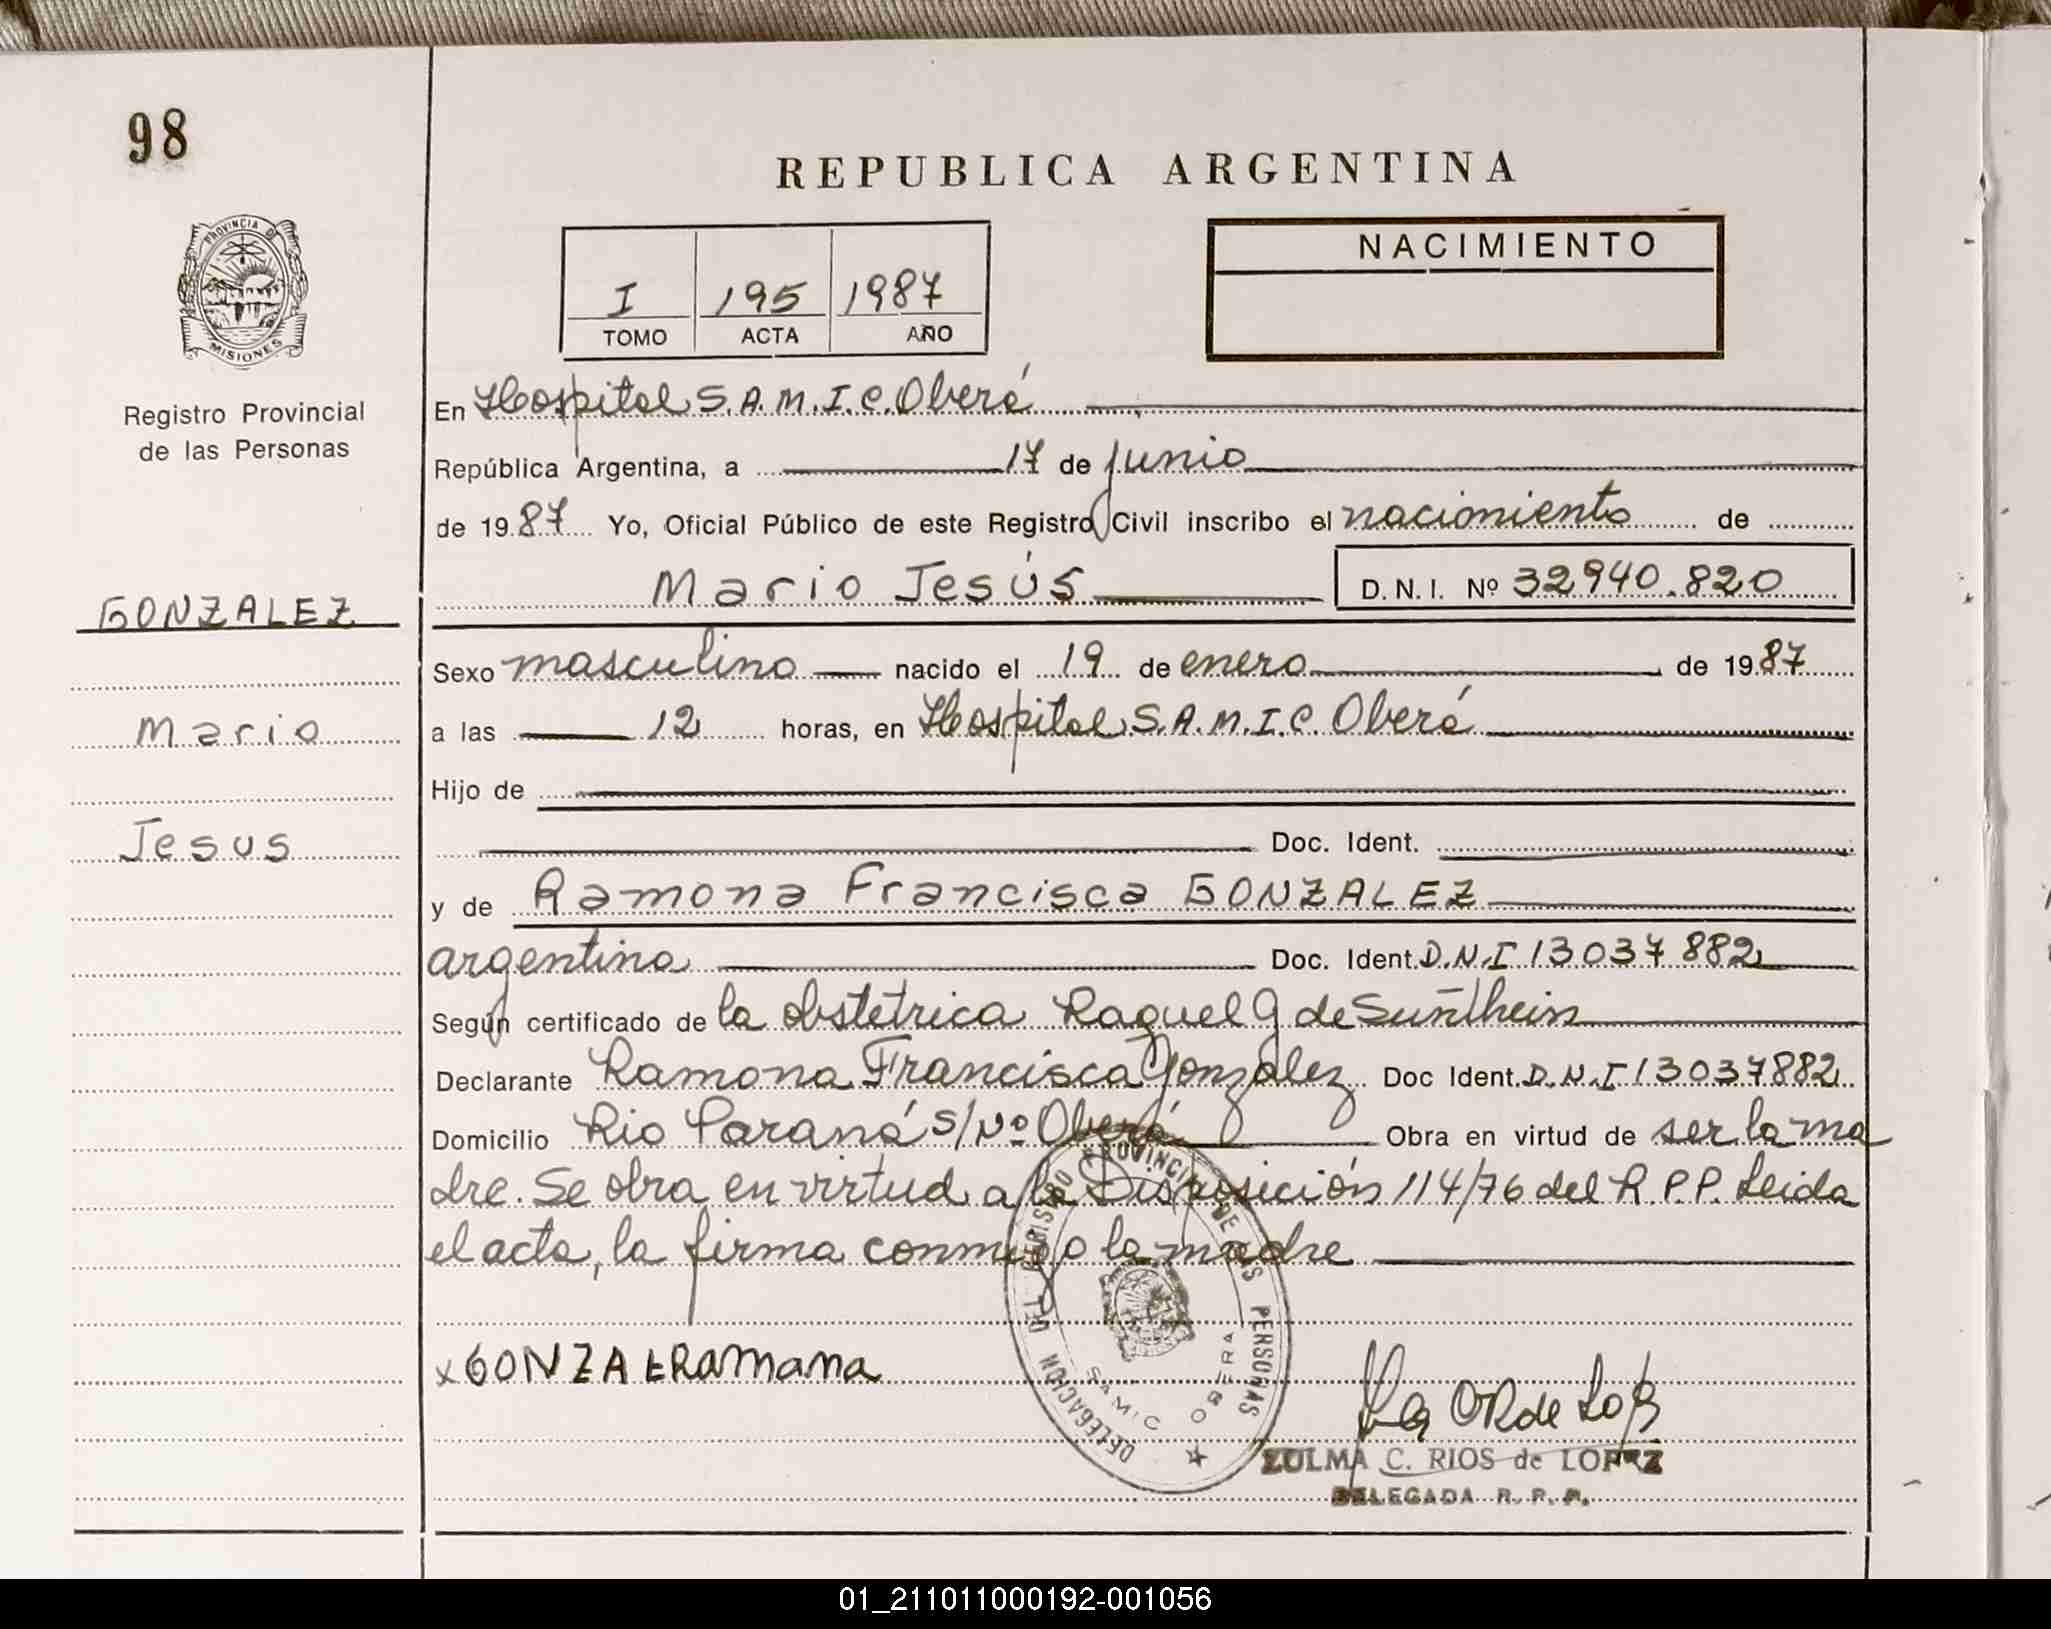 98
REPUBLICA ARGENTINA
PROVINCIA DE
MISIONES
Registro Provincial
de las Personas
I 195 1987
TOMO ACTA AÑO
NACIMIENTO
En Hospital S.A.M.I.C. Oberá
República Argentina, a 17 de junio
de 1987 Yo, Oficial Público de este Registro Civil inscribo el nacimiento de
Mario Jesús D.N.I. Nº 32940.820
GONZALEZ
Mario
Jesus
Sexo masculino nacido el 19 de enero de 1987
a las 12 horas, en Hospital S.A.M.I.C. Oberá
Hijo de
Doc. Ident.
y de Ramona Francisca GONZALEZ
argentina Doc. Ident. D.N.I 13037882
Según certificado de la obstetrica Raquel G de
Declarante Ramona Francisca Gonzalez Doc Ident. D.N.I 13037882
Domicilio Rio Paraná S/Nº Oberá Obra en virtud de ser la ma
dre. Se obra en virtud a la Disposición 114/76 del R.P.P. Leida
el acta, la firma conmigo la madre
x GONZA Ramana
DELEGACION DEL REGISTRO PROVINCIAL DE LAS PERSONAS
SAMIC OBERA
ZULMA C. RIOS de LOPEZ
DELEGADA R. P. P.
01_211011000192-001056